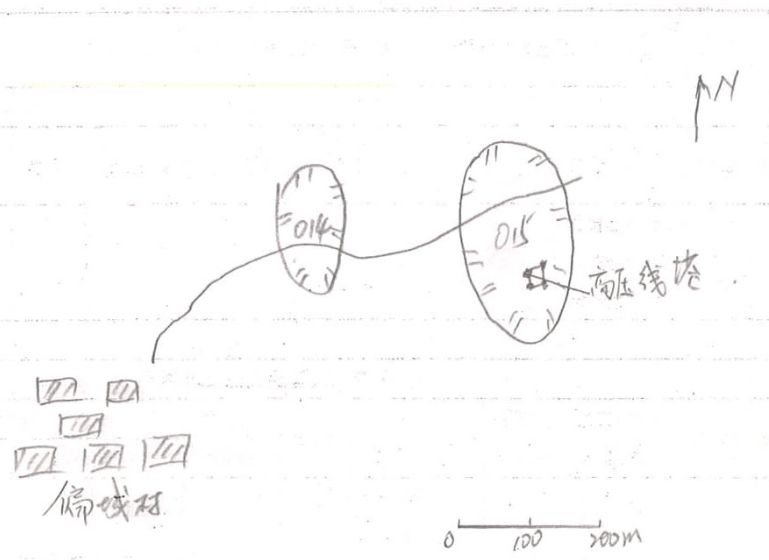 N
014
015
高压线塔
偏城村
0 100 200m